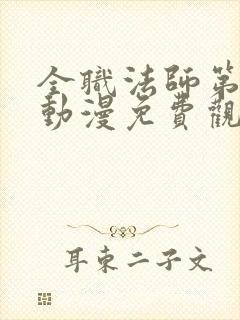 全職法師第
動漫免費觀
耳東二子文